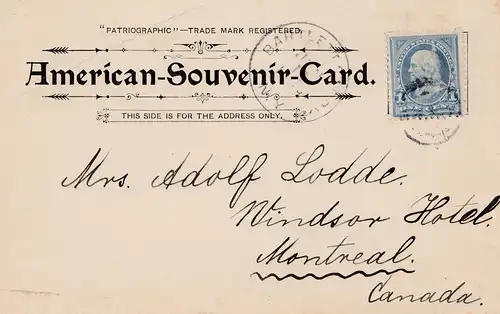 "PATRIOGRAPHIC"—TRADE MARK REGISTERED.
American-Souvenir-Card.
THIS SIDE IS FOR THE ADDRESS ONLY.
Mrs. Adolf Lodde.
Windsor Hotel.
Montreal.
Canada.